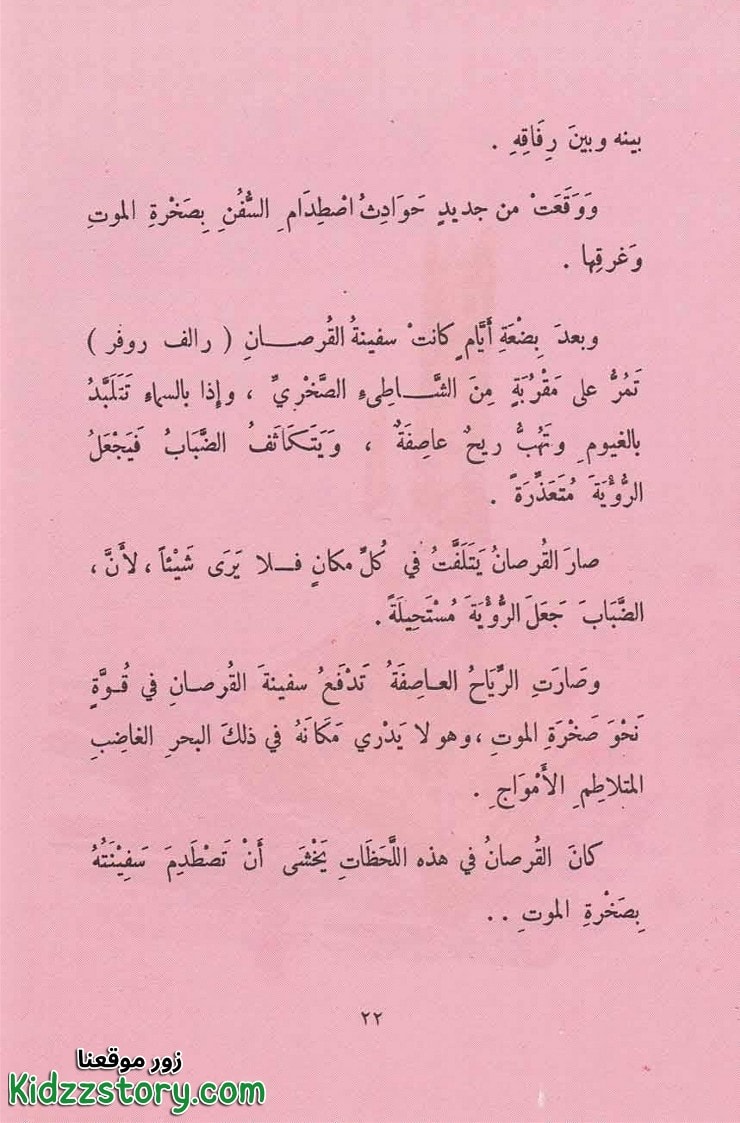 بينه وبينَ رِفَاقِهِ .
وَوَقَعَتْ من جديدٍ حَوَادِثُ اصْطِدَامِ السُّفُنِ بِصَخْرَةِ الموتِ
وَغرقِها .
وبعدَ بِضْعَةِ أيَّامٍ كانتْ سفينةُ القُرصـــانِ ( رالف روفر )
تَمُرُّ على مَقْرُبَةٍ مِنَ الشَّـــاطِىءِ الصَّخْرِيِّ ، وإذا بالسماءِ تَتَلَبَّدُ
بالغيومِ وتَهُبُّ ريحٌ عاصِفَةٌ ، وَيَتَكَاثَفُ الضَّبَابُ فَيَجْعَلُ
الرُّؤْيَةَ مُتَعَذِّرَةً .
صارَ القُرصانُ يَتَلَفَّتُ في كُلِّ مكانٍ فــلا يَرَى شَيْئاً ، لأنَّ ،
الضَّبَابَ جَعَلَ الرُّؤْيَةَ مُسْتَحِيلَةً .
وصَارَتِ الرِّيَاحُ العـاصِفَةُ تَدْفَعُ سفينةَ القُرصـانِ في قُـوَّةٍ
نَحْوَ صَخْرَةِ الموتِ ، وهو لا يَدْري مَكَانَهُ في ذلكَ البحرِ الغاضِبِ
المتلاطِمِ الأَمْوَاجِ .
كانَ القُرصانُ في هذه اللَّحَظَاتِ يَخْشَى أَنْ تَصْطَدِمَ سَفِيْنَتُهُ
بِصَخْرَةِ الموتِ ..
٢٢
زور موقعنا
Kidzzstory.com